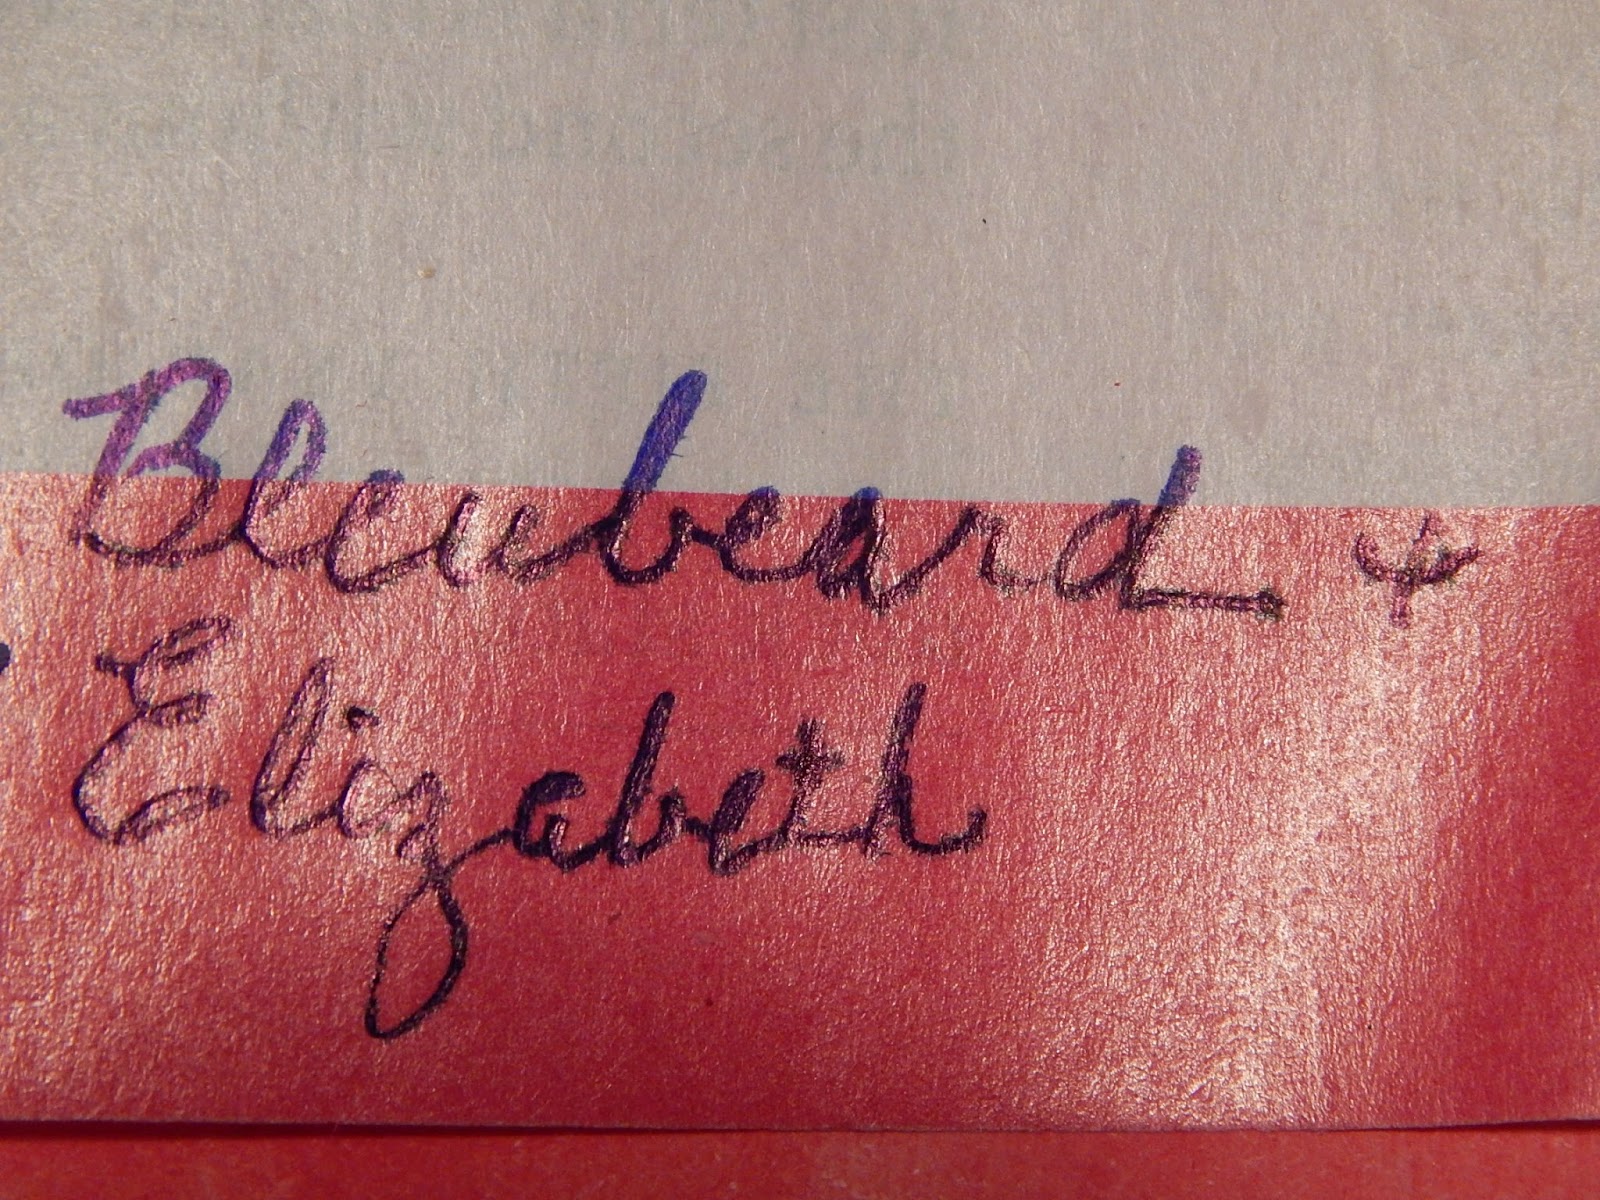 Bleubeard &
Elizabeth